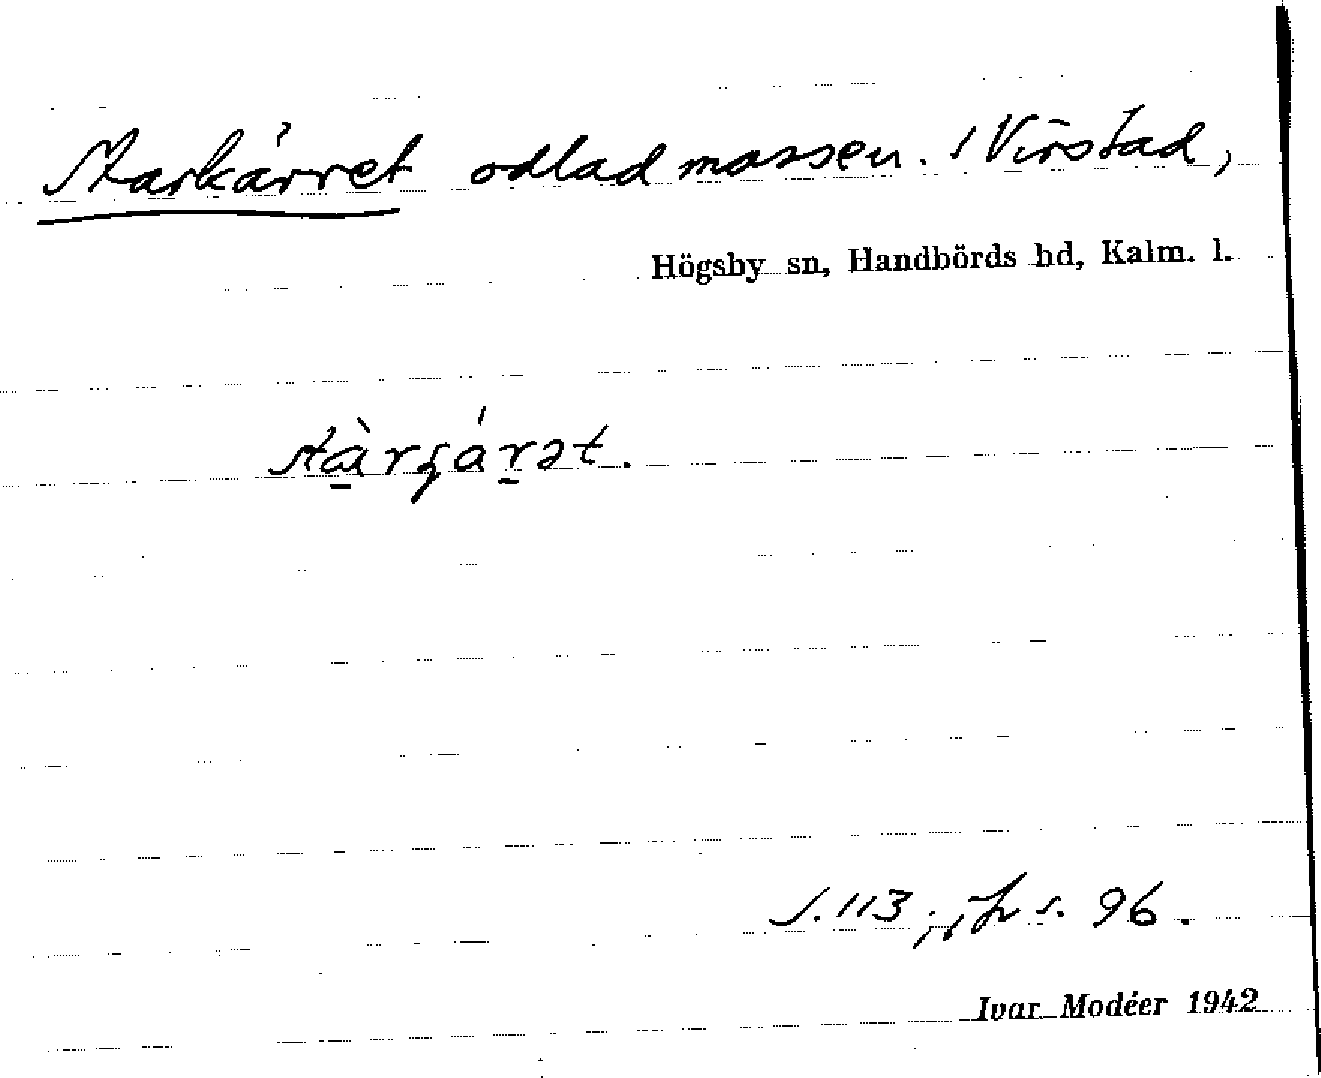 Starkärret odlad mossen. i Virstad,
Högsby sn, Handbörds hd, Kalm. l.
s. 113; s. 96.
Ivar Modéer 1942